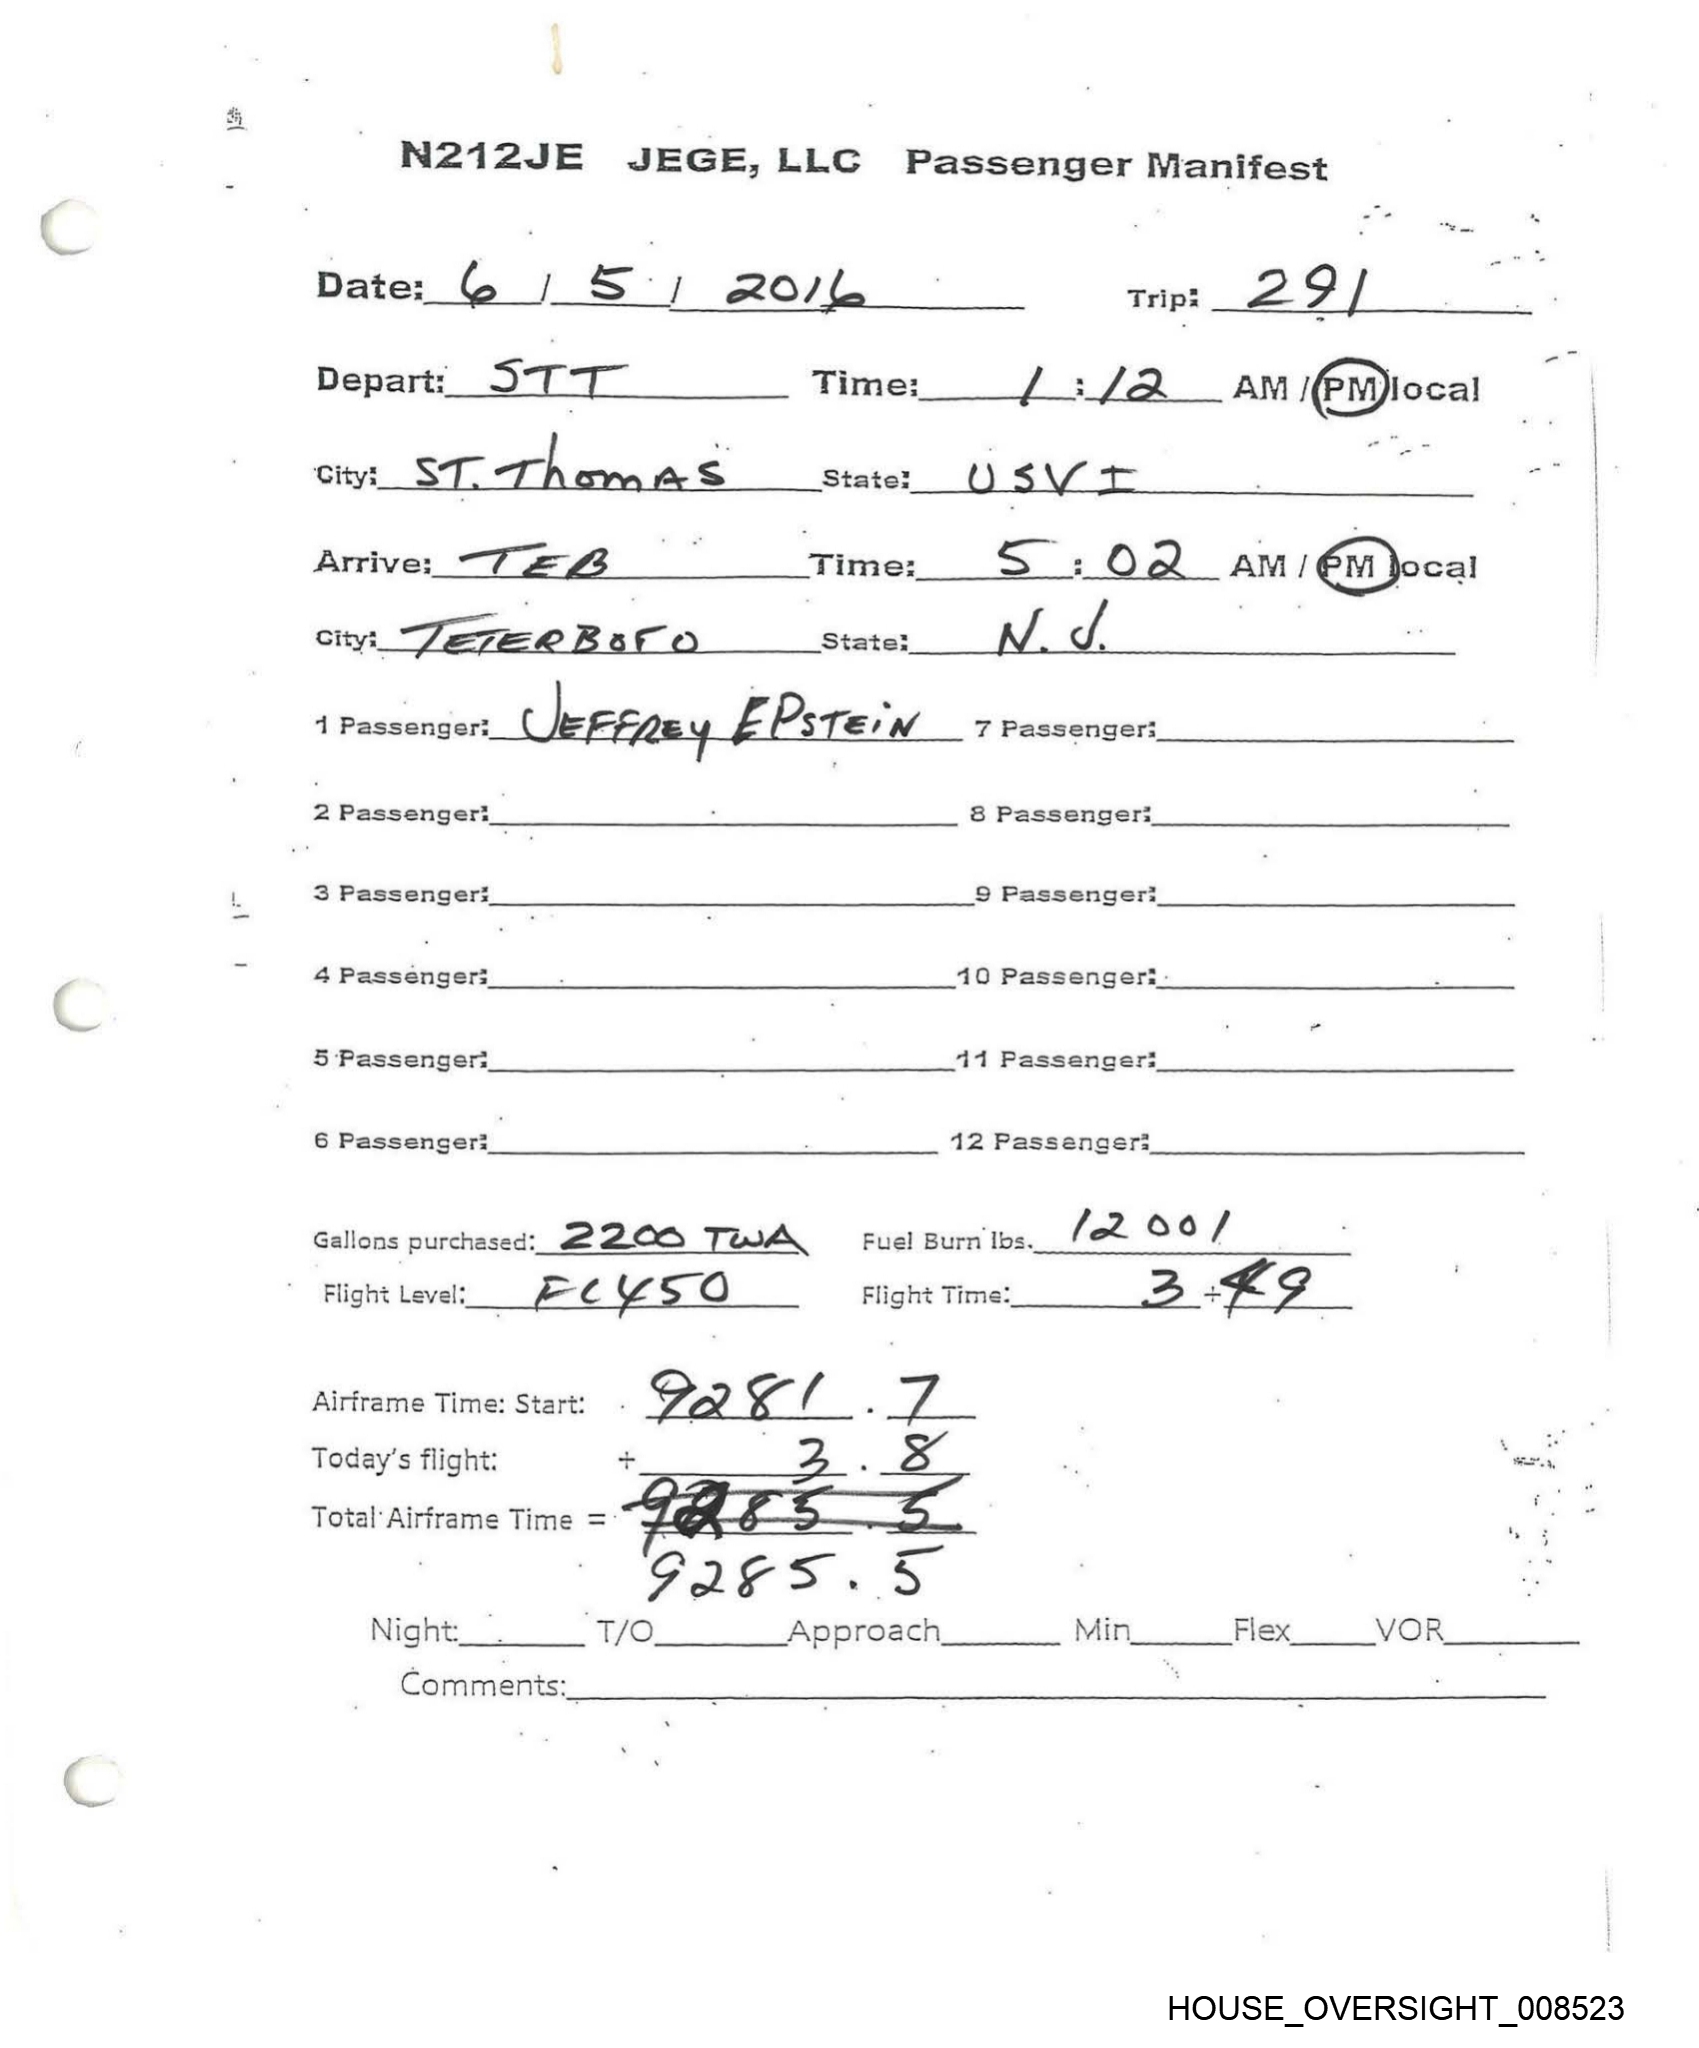 N212JE JEGE, LLC Passenger Manifest
Date: 6 / 5 / 2016 Trip: 291
Depart: STT Time: 1:12 AM / PM local
City: ST. Thomas State: USVI
Arrive: TEB Time: 5:02 AM / PM local
City: TETERBORO State: N.J.
1 Passenger: JEFFREY EPSTEIN 7 Passenger:
2 Passenger: 8 Passenger:
3 Passenger: 9 Passenger:
4 Passenger: 10 Passenger:
5 Passenger: 11 Passenger:
6 Passenger: 12 Passenger:
Gallons purchased: 2200 TWA Fuel Burn lbs. 12001
Flight Level: FL450 Flight Time: 3 + 49
Airframe Time: Start: 9281.7
Today's flight: + 3.8
Total Airframe Time = 9285.5
9285.5
Night: T/O Approach Min Flex VOR
Comments:
HOUSE_OVERSIGHT_008523